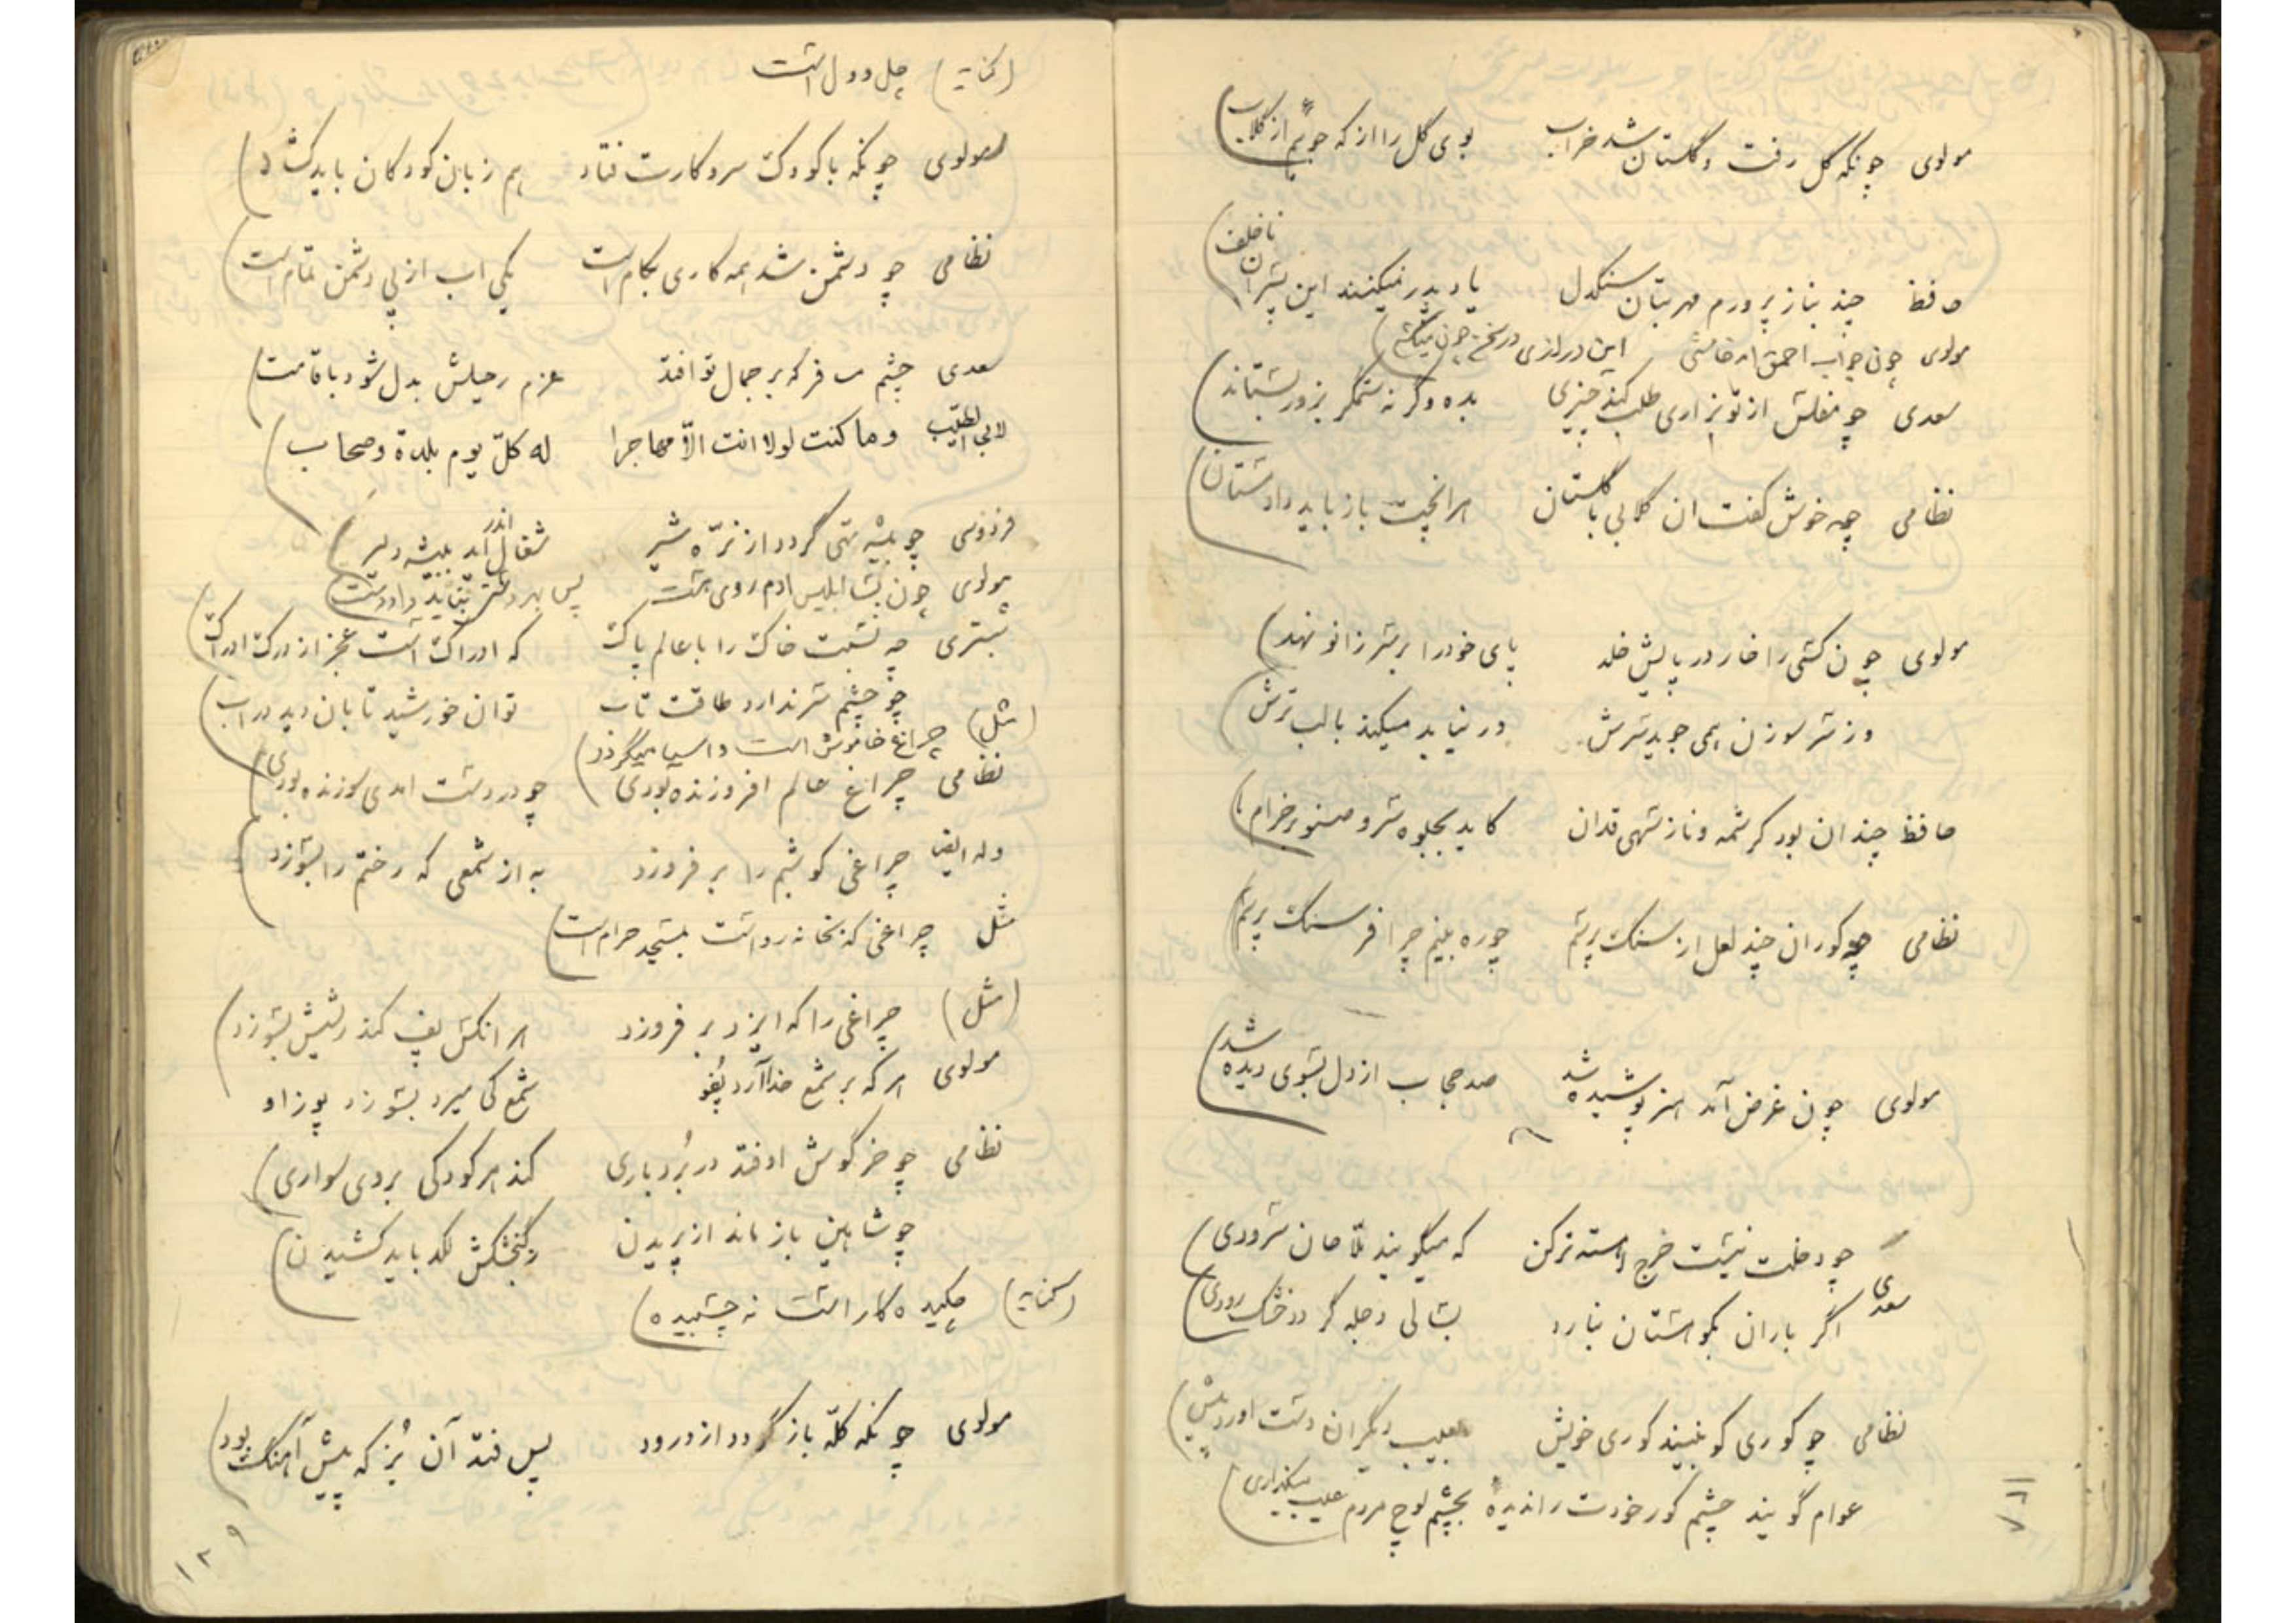 مولوی چونکه گل رفت و گلستان شد خراب بوی گل را از که جوئیم از گلاب
حافظ چند بناز پرورم مهر بتان سنگدل یاد پدر نمیکنند این پسران ناخلف
مولوی چون جواب احمق امد خامشی این درازی در سخن چون میکشی
سعدی چو مفلس از تو بزاری طلب کند چیزی بده وگرنه ستمگر بزور بستاند
نظامی چه خوش گفت ان کلابی با گلستان هرانچت باز باید داد مستان
مولوی چون کسی را خار در پایش خلد پای خود را بر سر زانو نهد
وز سر سوزن همی جوید سرش ور نیابد میکند با لب ترش
حافظ چندان بود کرشمه و ناز سهی قدان کاید بجلوه سرو صنوبر خرام ما
نظامی چو کوران چند لعل از سنگ پرسم چو ره بینم چرا فرسنگ پرسم
مولوی چون غرض آمد هنر پوشیده شد صد حجاب از دل بسوی دیده شد
سعدی چو دخلت نیست خرج اهسته تر کن که میگویند ملاحان سرودی
اگر باران بکوهستان نبارد بسالی دجله گردد خشک رودی
نظامی چو کوری کو نبیند کوری خویش بعیب دیگران دست اورد پیش
عوام گویند چشم کور خودت را ندیده بچشم لوچ مردم عیب میگذاری
(کنایه) چل و دول است
مولوی چونکه با کودک سر و کارت فتاد هم زبان کودکان باید گشاد
نظامی چو دشمن شد همه کاری بکام است یکی اب از پی دشمن تمام است
سعدی چشم مسافر که بر جمال تو افتد عزم رحیلش بدل شود باقامت
لابی الطیب وما کنت لولا انت الا مهاجرا له کل یوم بلدة وصحاب
فردوسی چو بیشه تهی گردد از نره شیر شغال اندر آید ببیشه دلیر
مولوی چون بسا ابلیس ادم روی هست پس بهر دستی نباید داد دست
شبستری چه نسبت خاک را با عالم پاک که ادراک است عجز از درک ادراک
چو چشم سر ندارد طاقت تاب توان خورشید تابان دید در اب
(مثل) چراغ خاموش است و اسیا میگردد
نظامی چراغ عالم افروزنده بودی چو در دست امدی سوزنده بودی
وله ایضا چراغی کو شبم را بر فروزد به از شمعی که رختم را بسوزد
مثل چراغی که بخانه رواست بمسجد حرام است
(مثل) چراغی را که ایزد بر فروزد هر انکس پف کند ریشش بسوزد
مولوی هر که بر شمع خدا آرد پفو شمع کی میرد بسوزد پوز او
نظامی چو خرگوش اوفتد در بردباری کند هر کودکی بر وی سواری
چو شاهین باز ماند از پریدن ز گنجشکش لگد باید کشیدن
(کنایه) چکیده کار است نه چسبیده
مولوی چونکه گله باز گردد از ورود پس فتد آن بز که پیش آهنگ بود
۱۲۹